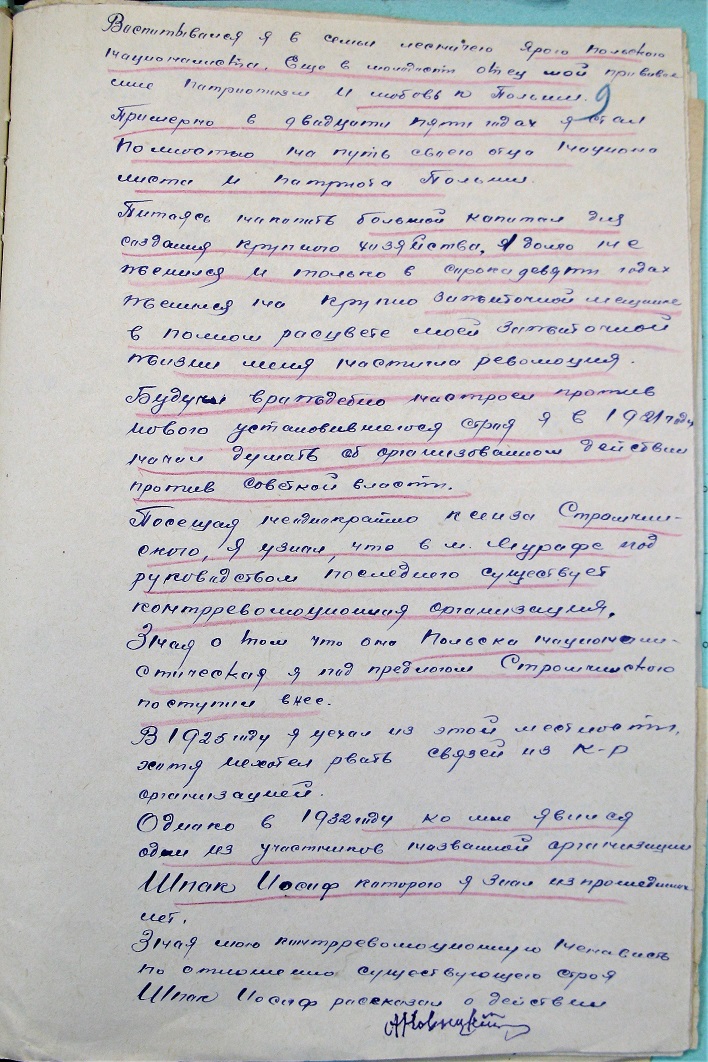 Васпитывался я в семьи лесничего ярого польского
националиста. Еще в молодости отец мой прививал
мне патриотизм и любовь к Польши.
9
Примерно в двадцати пяти годах я стал
полностью на путь своего отца национа
листа и патриота Польши.
Питаясь накапить большой капитал для
создания крупного хазяйства, я долго не
женился и только в сорокадевяти годах
женился на крупно зажиточной мещанке
в полном расцвете моей зажиточной
жизни меня настигла революция.
Будучи враждебно настроен против
нового установившегося строя я в 1921 году
начал думать об организованом действии
против советской власти.
Посещая неоднакрайтно ксенза Стромчин-
ского, я узнал, что в м. Мурафе под
руководством последнего существует
контрреволюционная организация.
Зная о том что она польска национали-
стическая я под предлогом Стромчинского
поступил внее.
В 1925 году я уехал из этой местности,
хатя нехотел рвать связей из к-р
организацией.
Однако в 1932 году ко мне явился
один из участников названной организации
Шпак Иосиф которого я знал из прошедших
лет.
Зная мою контрреволюционную ненависть
по отношению существующего строя
Шпак Иосиф рассказал о действии